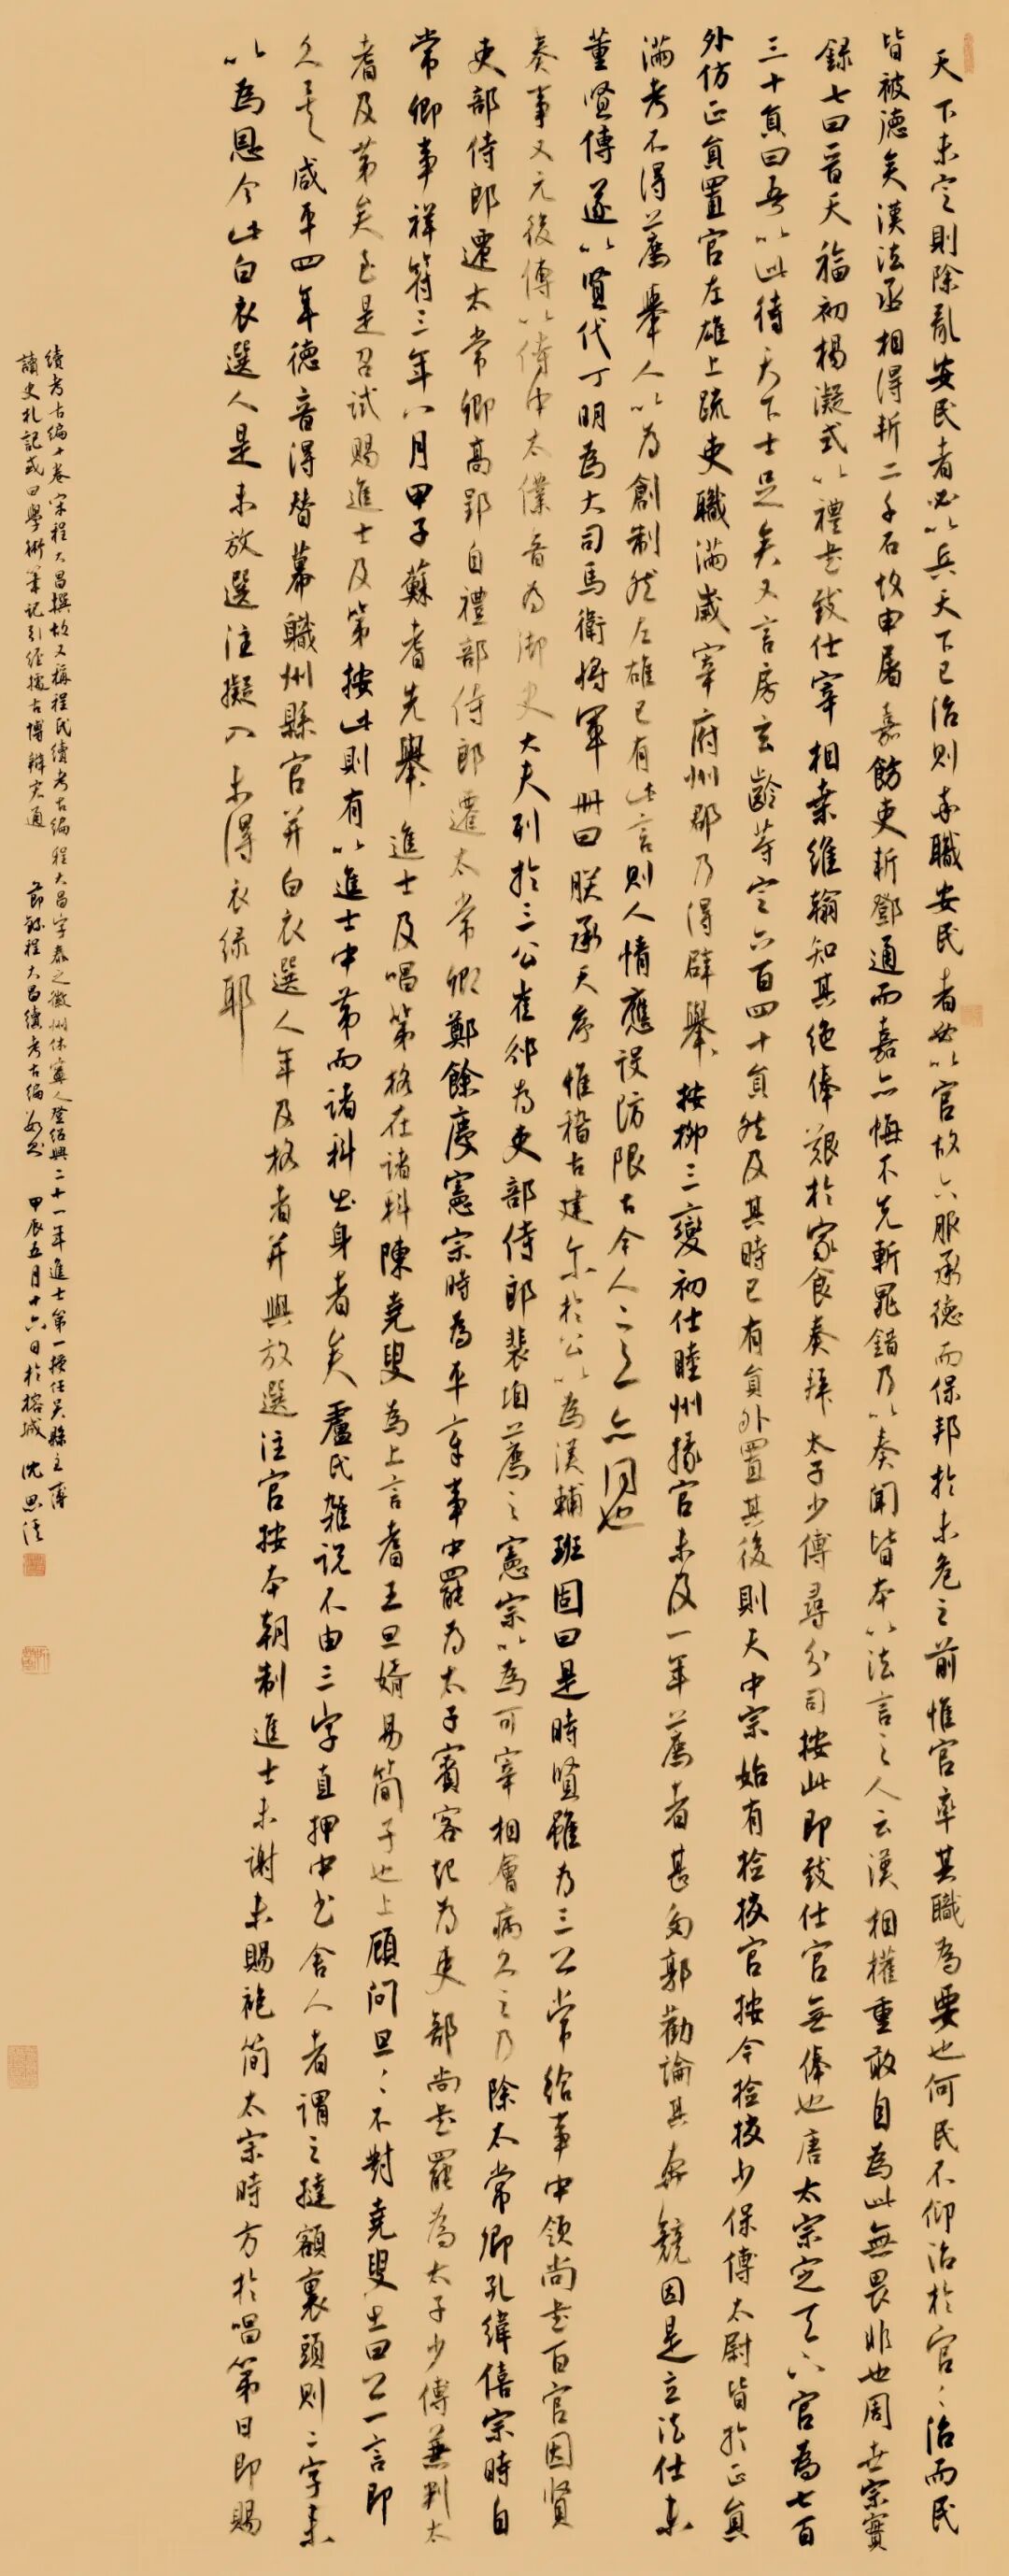 天下未定則除亂安民者必以兵天下已治則奉職安民者必以官故六服承德而保邦於未危之前惟官率其職為要也何民不仰治於官〻治而民
皆被德矣漢法丞相得斬二千石故申屠嘉飭吏斬鄧通而嘉亦悔不先斬晁錯乃以奏聞皆本以法言之人云漢相權重敢自為此無畏非也周世宗實
錄七曰晉天福初楊凝式以禮書致仕宰相桑維翰知其絕俸艱於家食奏拜太子少傅尋分司按此即致仕官無俸也唐太宗定天下官為七百
三十員曰吾以此待天下士足矣又言房玄齡等定六百四十員然及其時已有員外置其後則天中宗始有檢校官按今檢校少保傅太尉皆於正員
外仿正員置官左雄上疏吏職滿歲宰府州郡乃得辟舉按柳三變初仕睦州掾官未及一年薦者甚勾郭勸論其奔競因是立法仕未
滿考不得薦舉人以為創制然左雄已有此言則人情應設防限古今人之亦同也
董賢傳遂以賢代丁明為大司馬衛將軍冊曰朕承天序惟稽古建尔於公以為漢輔班固曰是時賢雖為三公常給事中領尚書百官因賢
奏事又元後傳以侍中太僕音為御史大夫列於三公崔邠為吏部侍郎裴垍薦之憲宗以為可宰相會病久之乃除太常卿孔緯僖宗時自
吏部侍郎遷太常卿高郢自禮部侍郎遷太常卿鄭餘慶憲宗時為平章事中罷為太子賓客起為吏部尚書罷為太子少傅兼判太
常卿事祥符三年八月甲子蘇耆先舉進士及唱第格在諸科陳堯叟為上言耆王旦婿易簡子也上顧問旦〻不對堯叟出曰公一言即
耆及第矣至是召試賜進士及第按此則有以進士中第而諸科出身者矣盧氏雜說不由三字直押中書舍人者謂之撻額裏頭則二字来
久矣咸平四年德音得替幕職州縣官并白衣選人年及格者并與放選注官按本朝制進士未謝未賜袍簡太宗時方於唱第日即賜
以為恩今此白衣選人是未放選注擬〻未得衣綠耶
續考古編十卷宋程大昌撰故又稱程氏續考古編程大昌字泰之徽州休寧人登紹興二十一年進士第一授任吳縣主簿
讀史札記或曰學術筆記引經據古博辯宏通節錄程大昌續考古編甲辰五月十六日於榕城沈思